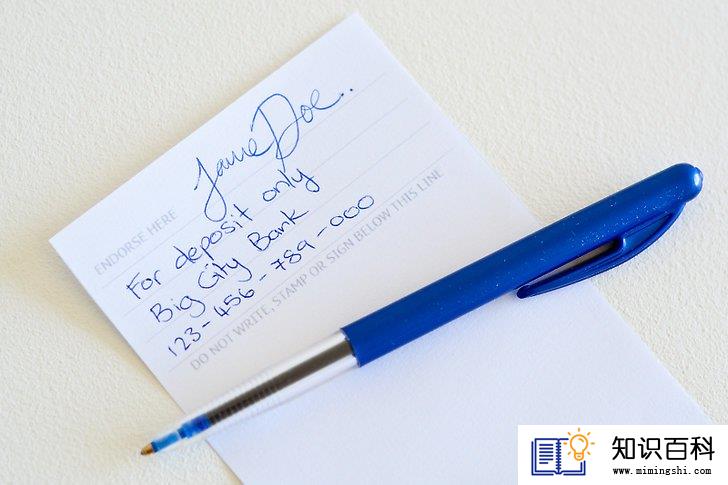 Jane Doe.
ENDORSE HERE
For deposit only
Big City Bank
123-456-789-000
DO NOT WRITE, STAMP OR SIGN BELOW THIS LINE
知识百科
www.mimingshi.com